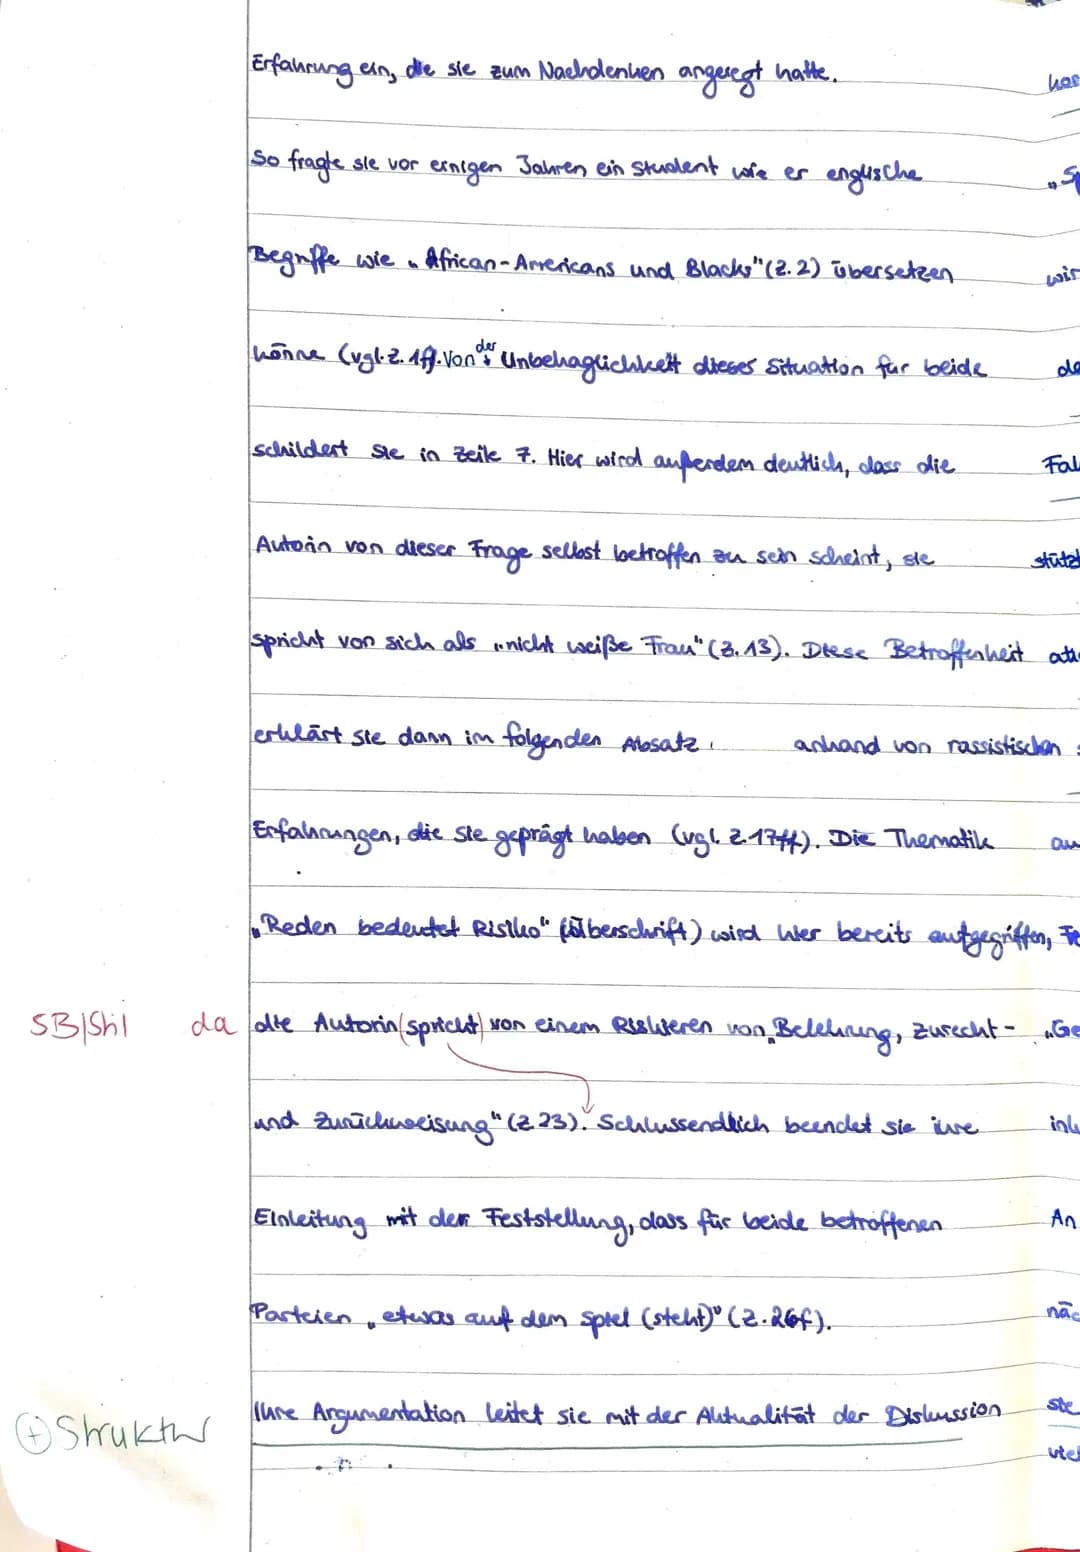 Erfahrung ein, die sie zum Nachdenken angeregt hatte.
So fragte sie vor einigen Jahren ein Student wie er englische
Begriffe wie „African-Americans und Blacks" (Z. 2) übersetzen
könne (vgl. Z. 1f). Von der Unbehaglichkeit dieses Situation für beide
schildert sie in Zeile 7. Hier wird außerdem deutlich, dass die
Autorin von dieser Frage selbst betroffen zu sein scheint, sie
spricht von sich als „nicht weiße Frau" (Z. 13). Diese Betroffenheit
erklärt sie dann im folgenden Absatz anhand von rassistischen
Erfahrungen, die sie geprägt haben (vgl. Z. 17ff). Die Thematik
„Reden bedeutet Risiko" (Überschrift) wird hier bereits aufgegriffen,
SB/Stil da die Autorin (spricht) von einem Riskieren von „Belehrung, Zurecht-
und Zurückweisung" (Z. 23). Schlussendlich beendet sie ihre
Einleitung mit der Feststellung, dass für beide betroffenen
Parteien „etwas auf dem Spiel (steht)" (Z. 26f).
+ Struktur Ihre Argumentation leitet sie mit der Aktualität der Diskussion
wir
Fal
stützt
au
„Ge
An
näc
ste
viel